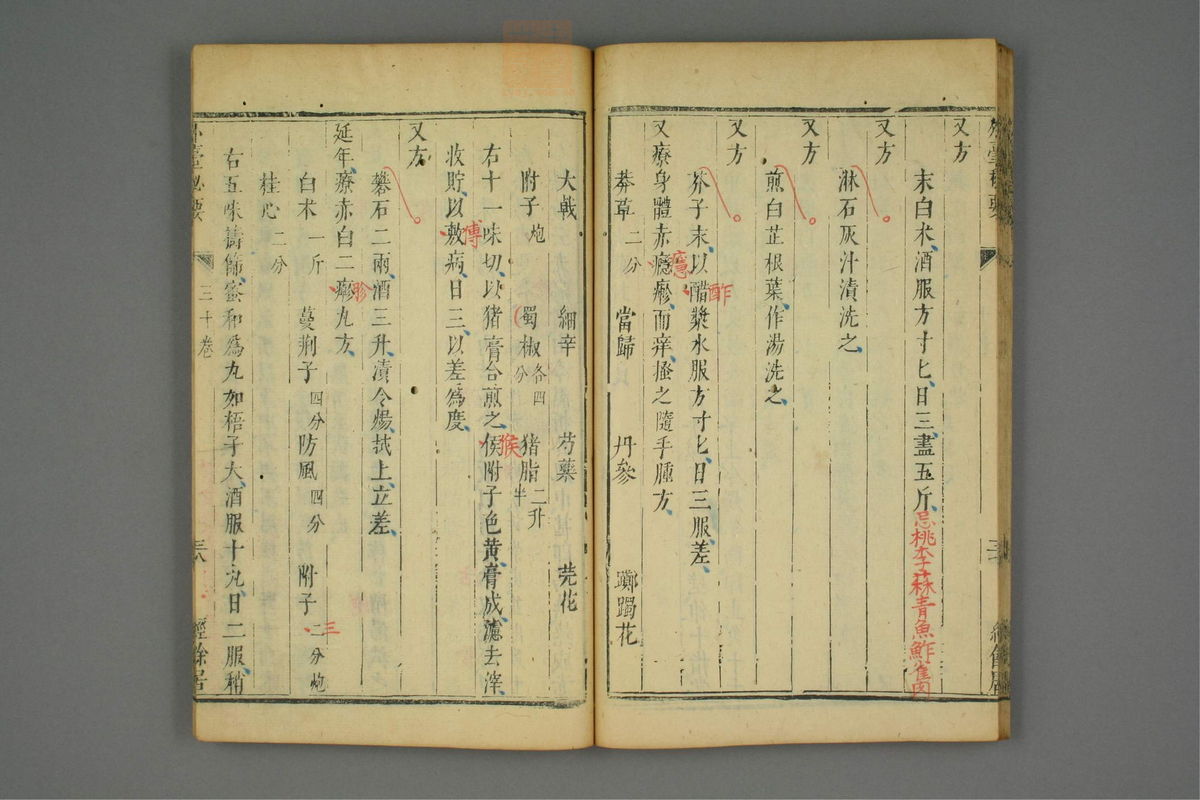 又方
末白朮酒服方寸匕日三盡五斤忌桃李蒜青魚鮓雀肉
又方
淋石灰汁漬洗之
又方
煎白芷根葉作湯洗之
又方
芥子末以醋漿水服方寸匕日三服差
酢
又療身體赤癮瘮而痒搔之隨手腫方
莽草二分 當歸 丹參 躑躅花
大戟 細辛 芍藥 芫花
附子炮 蜀椒各四分 猪脂二升半
右十一味切以猪膏合煎之侯附子色黄膏成濾去滓
候
收貯以敷病日三以差爲度
傅
又方
礬石二兩酒三升漬令煬拭上立差
延年療赤白二瘮九方
胗
白朮一斤 蔓荆子四分 防風四分 附子二分炮
三
桂心二分
右五味擣篩蜜和爲丸如梧子大酒服十丸日二服稍
外臺秘要 三十卷 經餘居